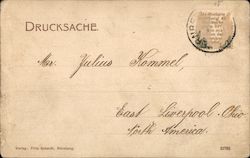 DRUCKSACHE.
Mr. Julius Kommel
East Liverpool Ohio
North America.
Verlag: Fritz Schardt, Nürnberg.